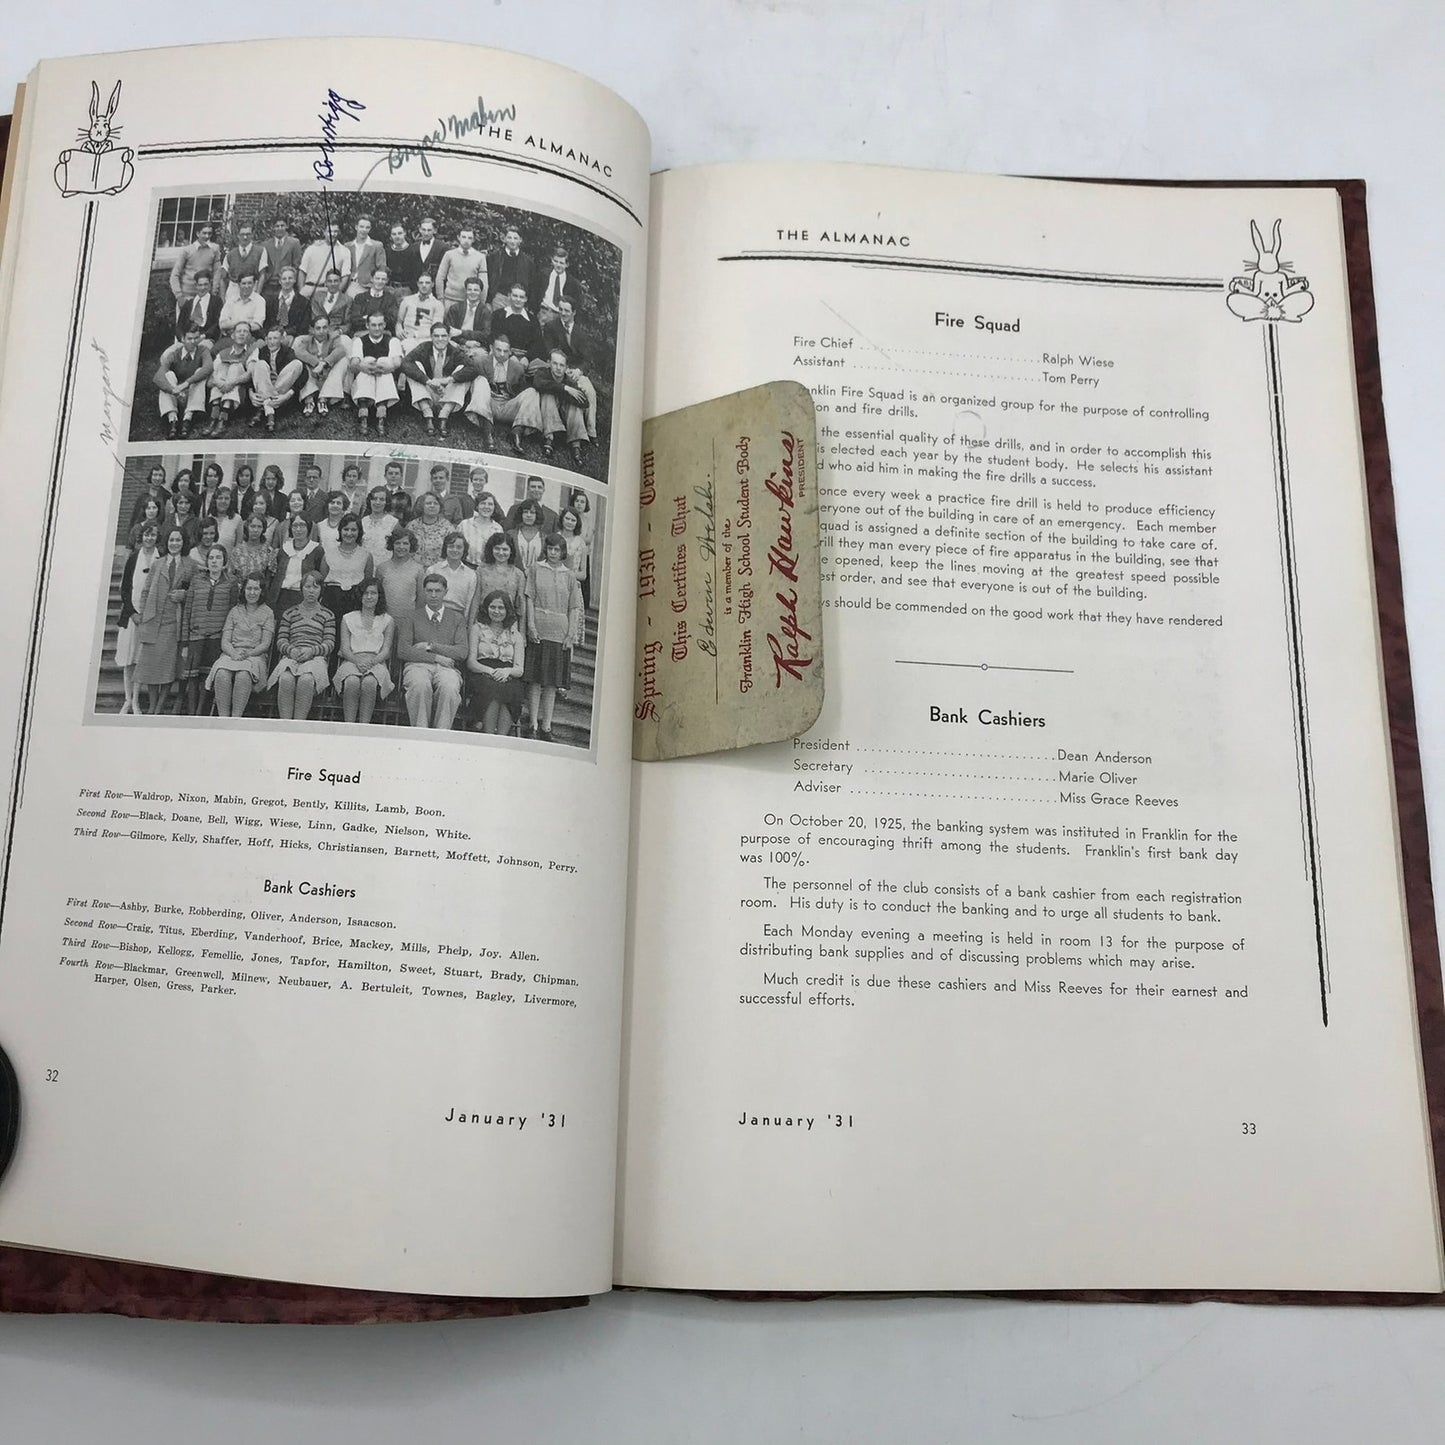 THE ALMANAC
Mabin
Margaret
Fire Squad
First Row—Waldrop, Nixon, Mabin, Gregot, Bently, Killits, Lamb, Boon.
Second Row—Black, Doane, Bell, Wigg, Wiese, Linn, Gadke, Nielson, White.
Third Row—Gilmore, Kelly, Shaffer, Hoff, Hicks, Christiansen, Barnett, Moffett, Johnson, Perry.
Bank Cashiers
First Row—Ashby, Burke, Robberding, Oliver, Anderson, Isaacson.
Second Row—Craig, Titus, Eberding, Vanderhoof, Brice, Mackey, Mills, Phelp, Joy. Allen.
Third Row—Bishop, Kellogg, Femellic, Jones, Tapfor, Hamilton, Sweet, Stuart, Brady, Chipman.
Fourth Row—Blackmar, Greenwell, Milnew, Neubauer, A. Bertuleit, Townes, Bagley, Livermore,
Harper, Olsen, Gress, Parker.
32
January '31
F
Spring - 1930 - Term
This Certifies That
Edwin
is a member of the
Franklin High School Student Body
Ralph Hawkins
PRESIDENT
THE ALMANAC
Fire Squad
Fire Chief ........................ Ralph Wiese
Assistant ........................ Tom Perry
nklin Fire Squad is an organized group for the purpose of controlling
on and fire drills.
the essential quality of these drills, and in order to accomplish this
is elected each year by the student body. He selects his assistant
d who aid him in making the fire drills a success.
once every week a practice fire drill is held to produce efficiency
eryone out of the building in care of an emergency. Each member
quad is assigned a definite section of the building to take care of.
rill they man every piece of fire apparatus in the building, see that
e opened, keep the lines moving at the greatest speed possible
est order, and see that everyone is out of the building.
ys should be commended on the good work that they have rendered
Bank Cashiers
President ........................ Dean Anderson
Secretary ........................ Marie Oliver
Adviser ........................ Miss Grace Reeves
On October 20, 1925, the banking system was instituted in Franklin for the
purpose of encouraging thrift among the students. Franklin's first bank day
was 100%.
The personnel of the club consists of a bank cashier from each registration
room. His duty is to conduct the banking and to urge all students to bank.
Each Monday evening a meeting is held in room 13 for the purpose of
distributing bank supplies and of discussing problems which may arise.
Much credit is due these cashiers and Miss Reeves for their earnest and
successful efforts.
January '31
33